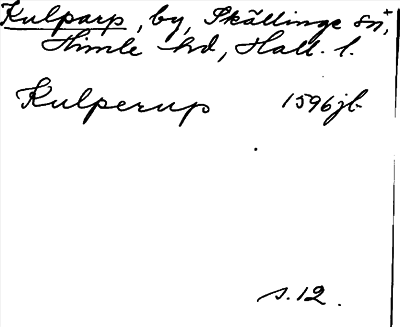 Kulparp, by, Skällinge sn,
Himle hd, Hall. l.
Kulperup 1596 jb
s. 12.